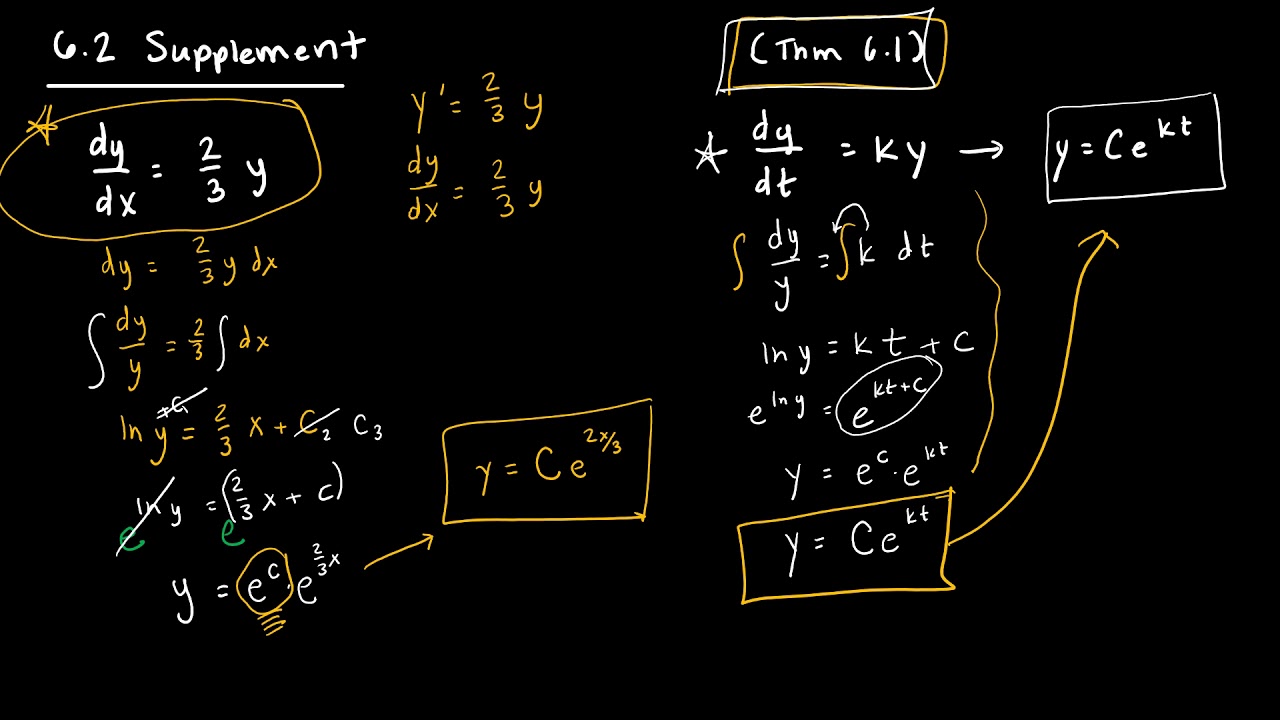 6.2 Supplement
dy/dx = 2/3 y
dy = 2/3 y dx
∫ dy/y = 2/3 ∫ dx
ln y + C₁ = 2/3 x + C₂ C₃
e^ln y = e^(2/3 x + C)
y = e^c · e^(2/3 x)
y' = 2/3 y
dy/dx = 2/3 y
y = Ce^(2x/3)
(Thm 6.1)
dy/dt = ky → y = Ce^kt
∫ dy/y = ∫ k dt
ln y = kt + C
e^ln y = e^kt+C
y = e^c · e^kt
y = Ce^kt